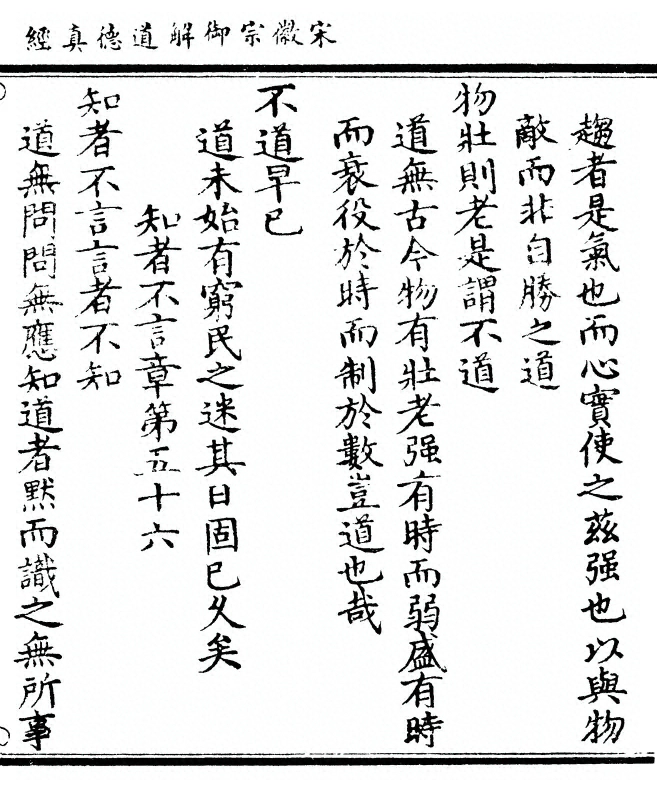 宋徽宗御解道德真經
趨者是氣也而心實使之茲强也以與物
敵而非自勝之道
物壯則老是謂不道
道無古今物有壯老强有時而弱盛有時
而衰役於時而制於數豈道也哉
不道早已
道未始有窮民之迷其日固已久矣
知者不言章第五十六
知者不言言者不知
道無問問無應知道者默而識之無所事